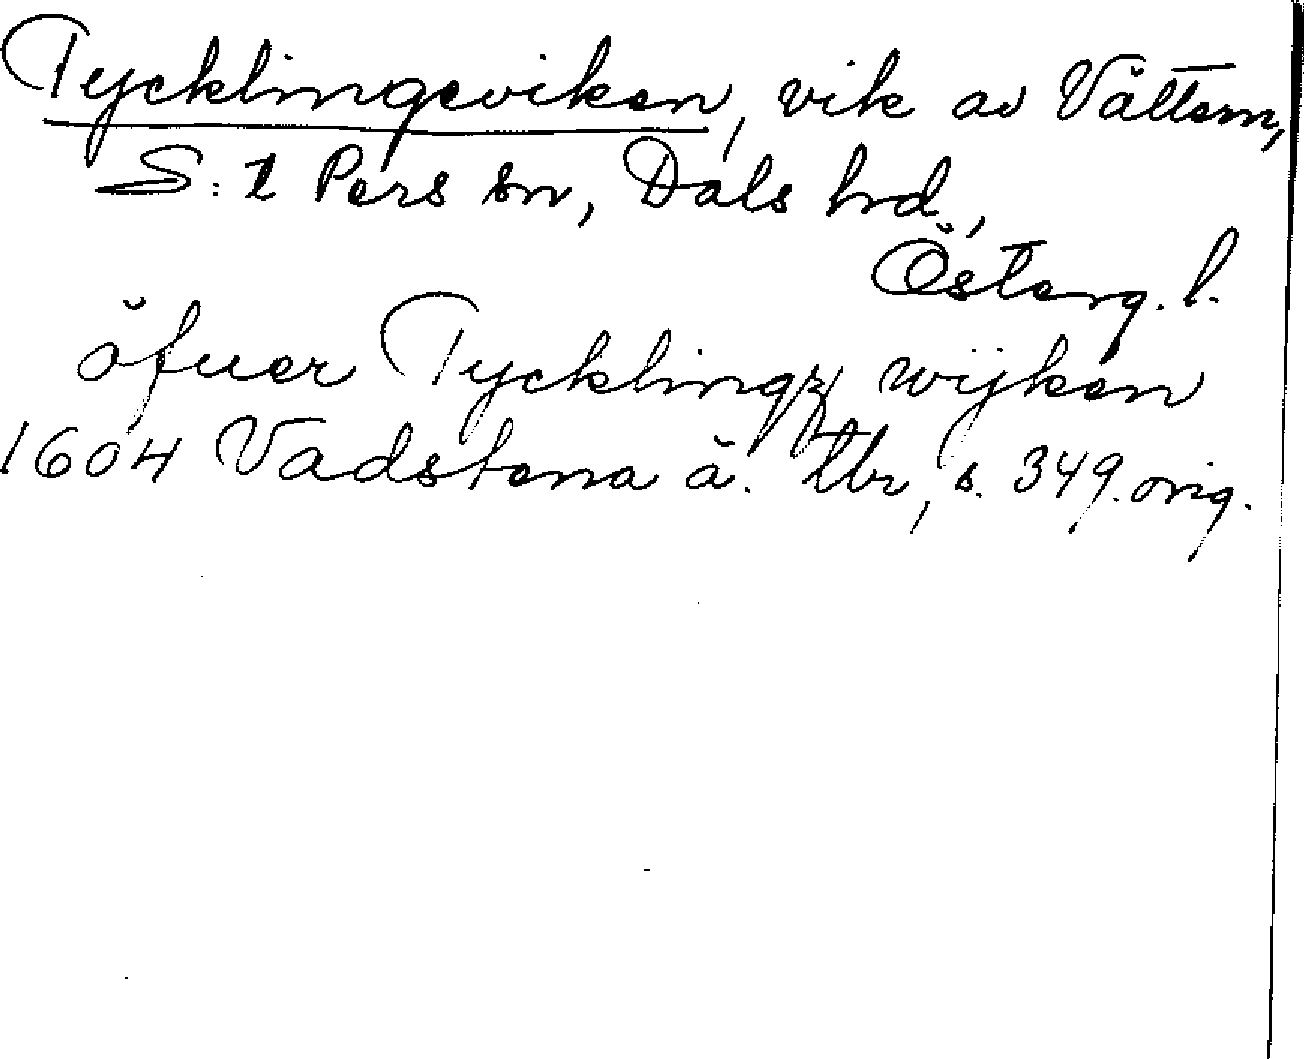 Tycklingeviken, vik av Vättern,
S:t Pers sn, Dals hrd.,
Österg. l.
öfuer Tycklingz wijken
1604 Vadstena ä. tbr, s. 349. orig.